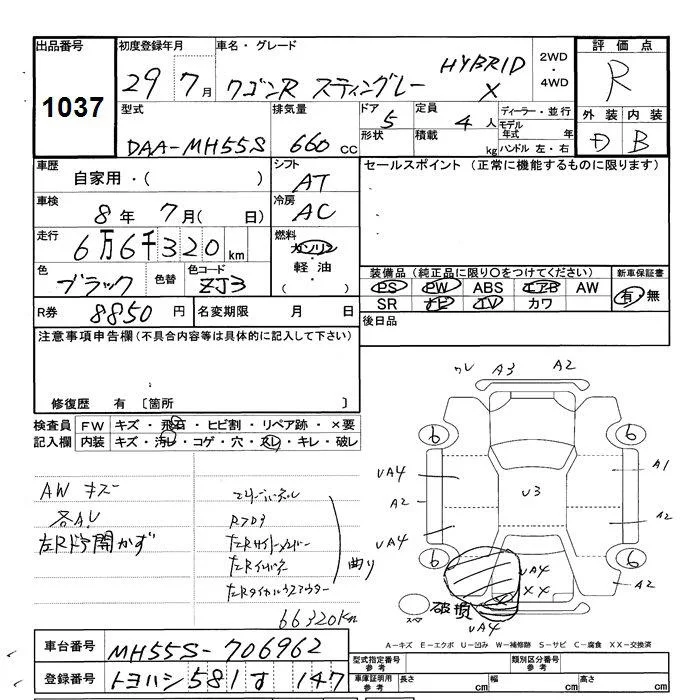 出品番号 初度登録年月 車名・グレード 2WD・4WD 評価点
1037 29 7月 ワゴンR スティングレー HYBRID X R
型式 排気量 ドア 定員 ディーラー・並行 外装 内装
DAA-MH55S 660cc 5 4人 モデル年式 年 D B
形状 積載 kg ハンドル 左・右
車歴 シフト セールスポイント (正常に機能するものに限ります)
自家用・( ) AT
車検 冷房
8年 7月( 日) AC
走行 燃料
6万6千320km ガソリン
軽油
・( )
色 色替 色コード 装備品 (純正品に限り○をつけてください) 新車保証書
ブラック ZJ3 PS PW ABS エアB AW 有・無
SR ナビ TV カワ
R券 8850円 名変期限 月 日 後日品
注意事項申告欄 (不具合内容等は具体的に記入して下さい)
修復歴 有 〔箇所 〕
検査員 FW キズ・飛石・ヒビ割・リペア跡・×要
記入欄 内装 キズ・汚レ・コゲ・穴・スレ・キレ・破レ
AW キズ
各AU
左Rドア開かず
曲り
66320km
A3 A2
6 6
UA4 A1
U3
A2 A2
UA4
6 6
UA4 A2
XX
破損
UA4
スペア
A-キズ E-エクボ U-凹み W-補修跡 S-サビ C-腐食 XX-交換済
車台番号 MH55S-706962
登録番号 トヨハシ 581 す 147
型式指定番号 参考 類別区分番号 参考
車庫証明用 参考 長さ cm 幅 cm 高さ cm